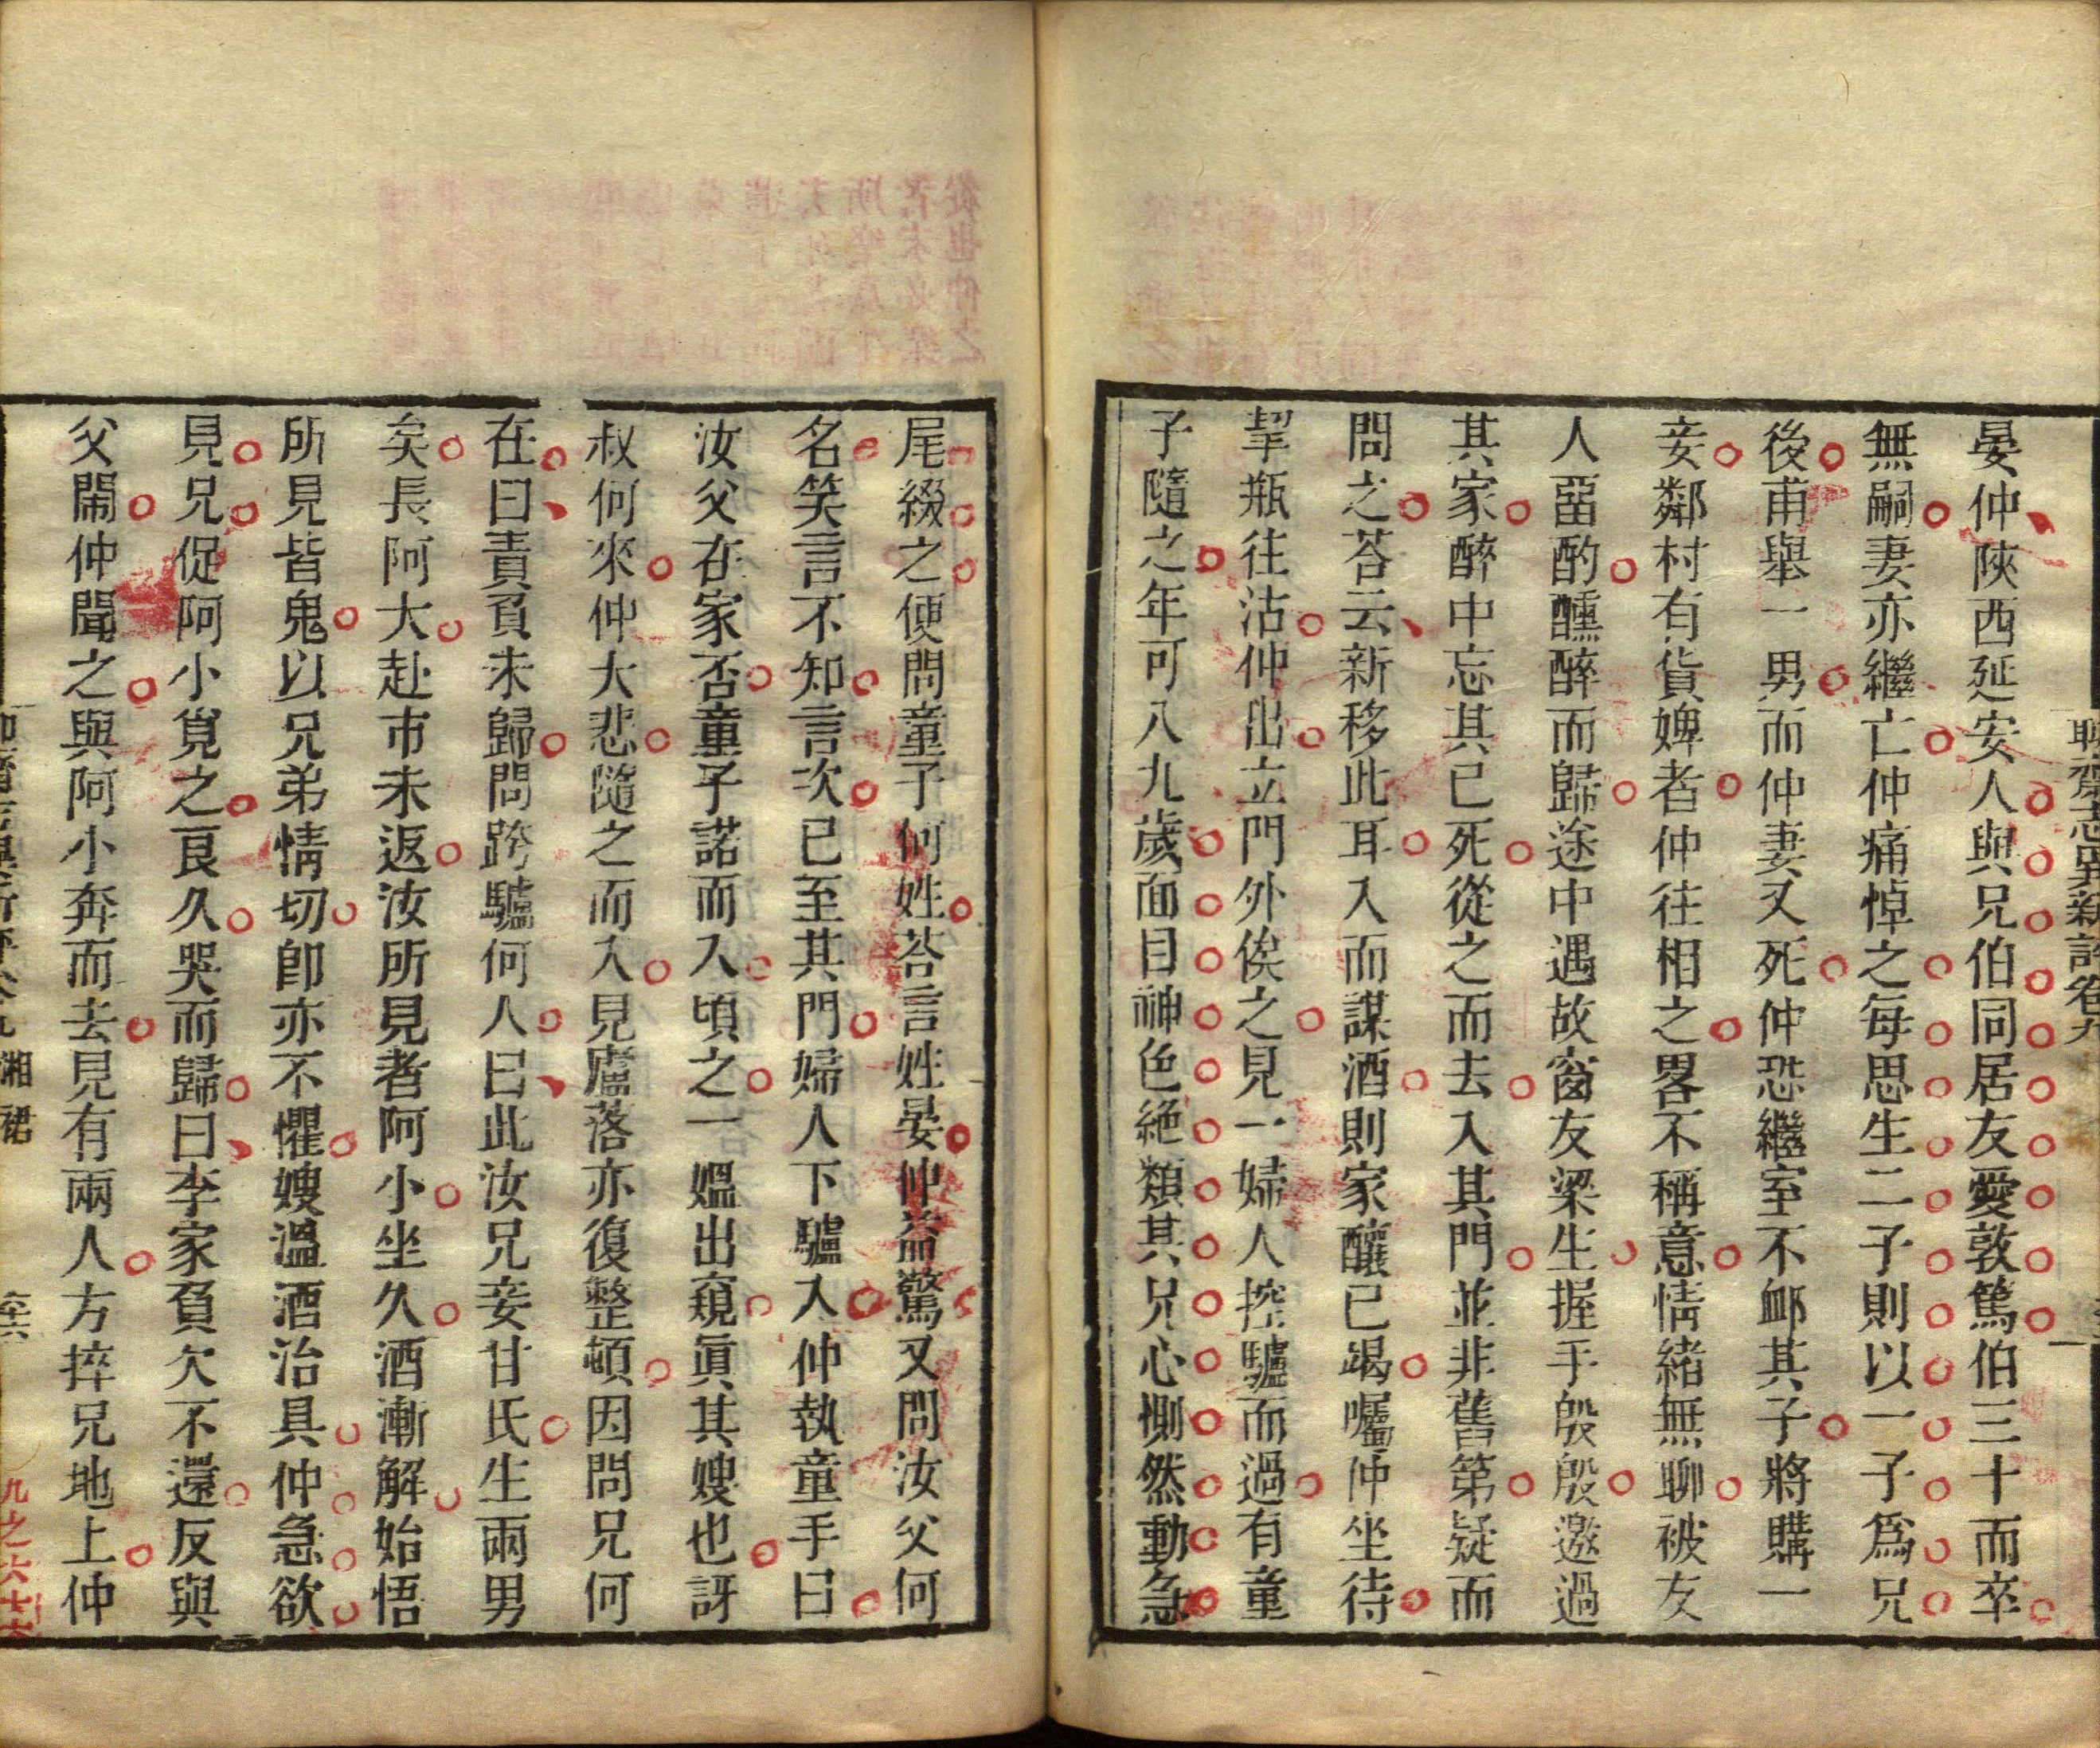 聊齋志異新評卷九
晏仲陝西延安人與兄伯同居友愛敦篤伯三十而卒
無嗣妻亦繼亡仲痛悼之每思生二子則以一子爲兄
後甫舉一男而仲妻又死仲恐繼室不衈其子將購一
妾鄰村有貨婢者仲往相之畧不稱意情緒無聊被友
人畱酌醺醉而歸途中遇故窗友梁生握手殷殷邀過
其家醉中忘其已死從之而去入其門並非舊第疑而
問之荅云新移此耳入而謀酒則家釀已竭囑仲坐待
挈瓶往沽仲出立門外俟之見一婦人控驢而過有童
子隨之年可八九歲面目神色絕類其兄心惻然動急
尾綴之便問童子何姓荅言姓晏仲益驚又問汝父何
名笑言不知言次已至其門婦人下驢入仲執童手曰
汝父在家否童子諾而入頃之一媼出窺眞其嫂也訝
叔何來仲大悲隨之而入見廬落亦復整頓因問兄何
在曰責負未歸問跨驢何人曰此汝兄妾甘氏生兩男
矣長阿大赴市未返汝所見者阿小坐久酒漸解始悟
所見皆鬼以兄弟情切卽亦不懼嫂溫酒治具仲急欲
見兄促阿小覓之良久哭而歸曰李家負欠不還反與
父鬧仲聞之與阿小奔而去見有兩人方捽兄地上仲
湘裙
六十六
九之六十六